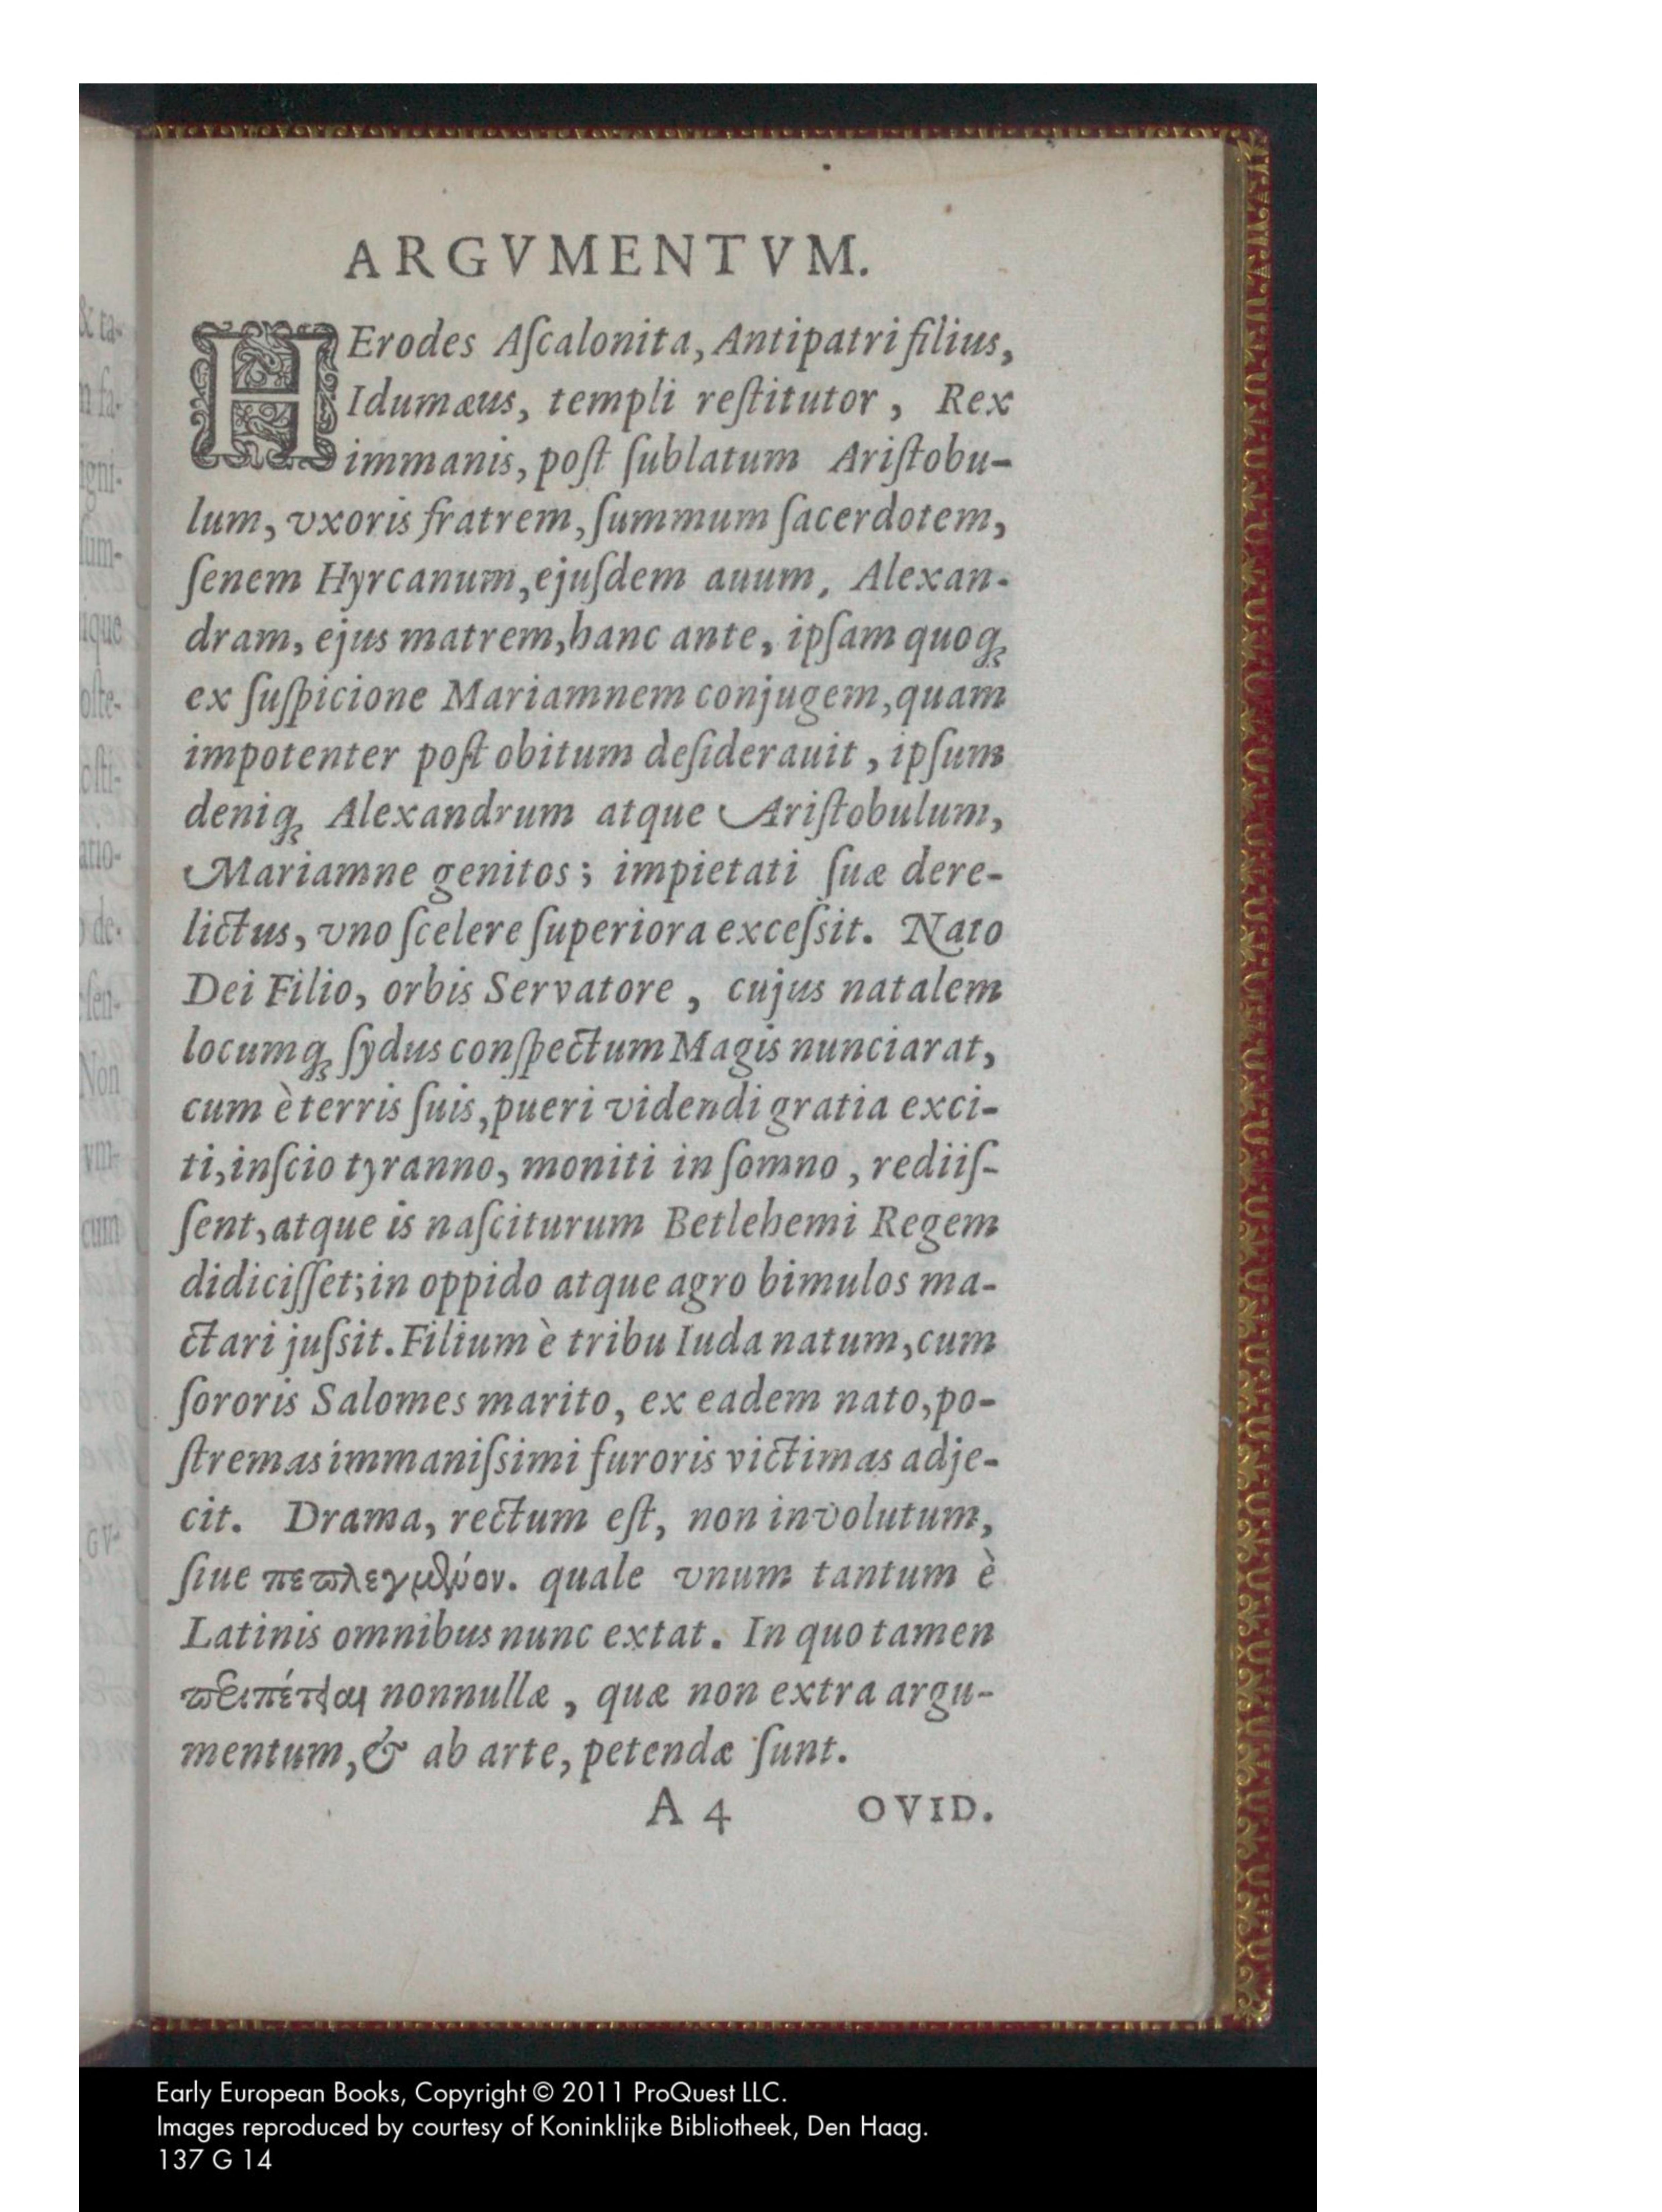 ARGVMENTVM.
HErodes Aſcalonita, Antipatri filius,
Idumæus, templi reſtitutor, Rex
immanis, poſt ſublatum Ariſtobu-
lum, vxoris fratrem, ſummum ſacerdotem,
ſenem Hyrcanum, ejuſdem auum, Alexan-
dram, ejus matrem, hanc ante, ipſam quoq;
ex ſuſpicione Mariamnem conjugem, quam
impotenter poſt obitum deſiderauit, ipſum
deniq; Alexandrum atque Ariſtobulum,
Mariamne genitos; impietati ſuæ dere-
lictus, vno ſcelere ſuperiora exceſsit. Nato
Dei Filio, orbis Servatore, cujus natalem
locumq; ſydus conſpectum Magis nunciarat,
cum è terris ſuis, pueri videndi gratia exci-
ti, inſcio tyranno, moniti in ſomno, rediiſ-
ſent, atque is naſciturum Betlehemi Regem
didiciſſet; in oppido atque agro bimulos ma-
ctari juſsit. Filium è tribu Iuda natum, cum
ſororis Salomes marito, ex eadem nato, po-
ſtremas immaniſsimi furoris victimas adje-
cit. Drama, rectum eſt, non involutum,
ſiue πεπλεγμένον. quale vnum tantum è
Latinis omnibus nunc extat. In quo tamen
περιπέτειαι nonnullæ, quæ non extra argu-
mentum, & ab arte, petendæ ſunt.
A 4 OVID.
Early European Books, Copyright © 2011 ProQuest LLC.
Images reproduced by courtesy of Koninklijke Bibliotheek, Den Haag.
137 G 14